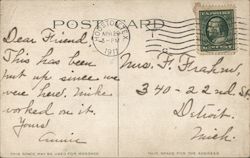 POST CARD
APR 29
3-PM
1911
Dear Friend
This has been
put up since we
were here. Mike
worked on it.
Yours
Annie
Mrs. F. Frahm
340-22nd St
Detroit
Mich.
THIS SPACE MAY BE USED FOR MESSAGE
THIS SPACE FOR THE ADDRESS